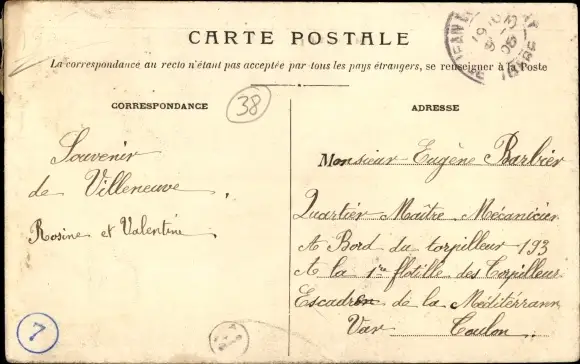 CARTE POSTALE
La correspondance au recto n'étant pas acceptée par tous les pays étrangers, se renseigner à la Poste
CORRESPONDANCE
38
ADRESSE
Souvenir
de Villeneuve,
Rosine et Valentine
Monsieur Eugène Barbier
Quartier Maître Mécanicien
A Bord du torpilleur 193
A la 1re flotille des Torpilleur
Escadron de la Méditérrann
Var Toulon.
7